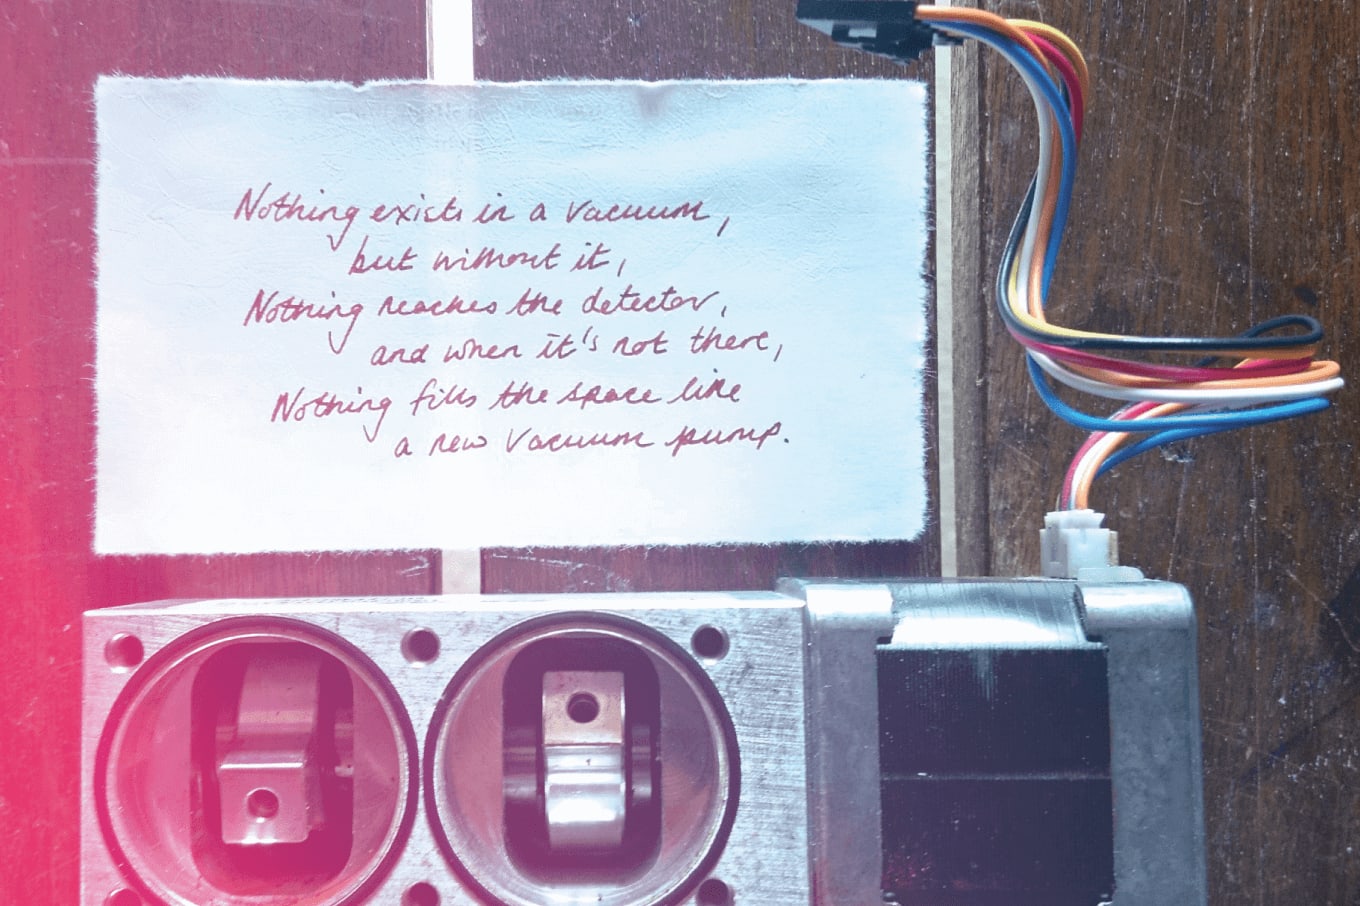 Nothing exists in a vacuum,
but without it,
Nothing reaches the detector,
and when it's not there,
Nothing fills the space like
a new vacuum pump.